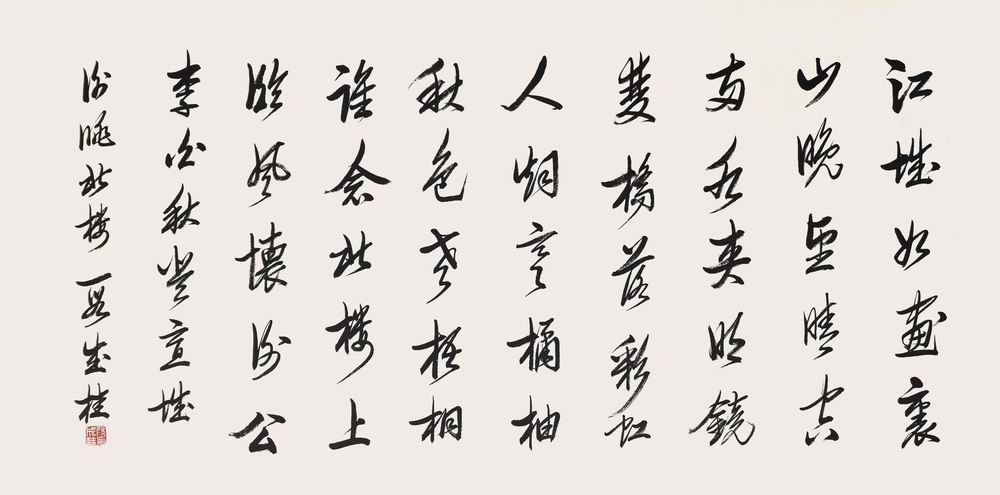 江城如畫裏
山晚望晴空
兩水夾明鏡
雙橋落彩虹
人烟寒橘柚
秋色老梧桐
誰念北樓上
臨風懷謝公
李白秋登宣城
謝朓北樓 段成桂